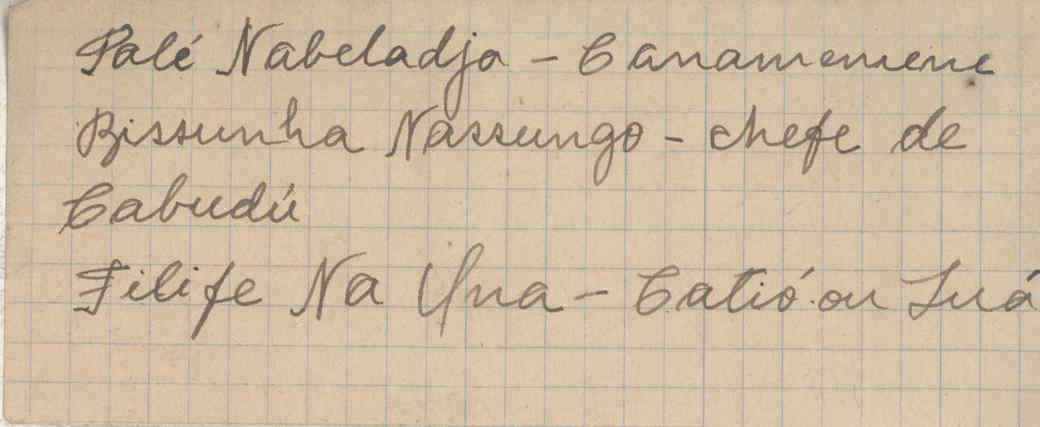 Palé Nabeladja - Canamemene
Bissunha Nassungo - chefe de
Cabudú
Filife Na Una - Catió ou Luá